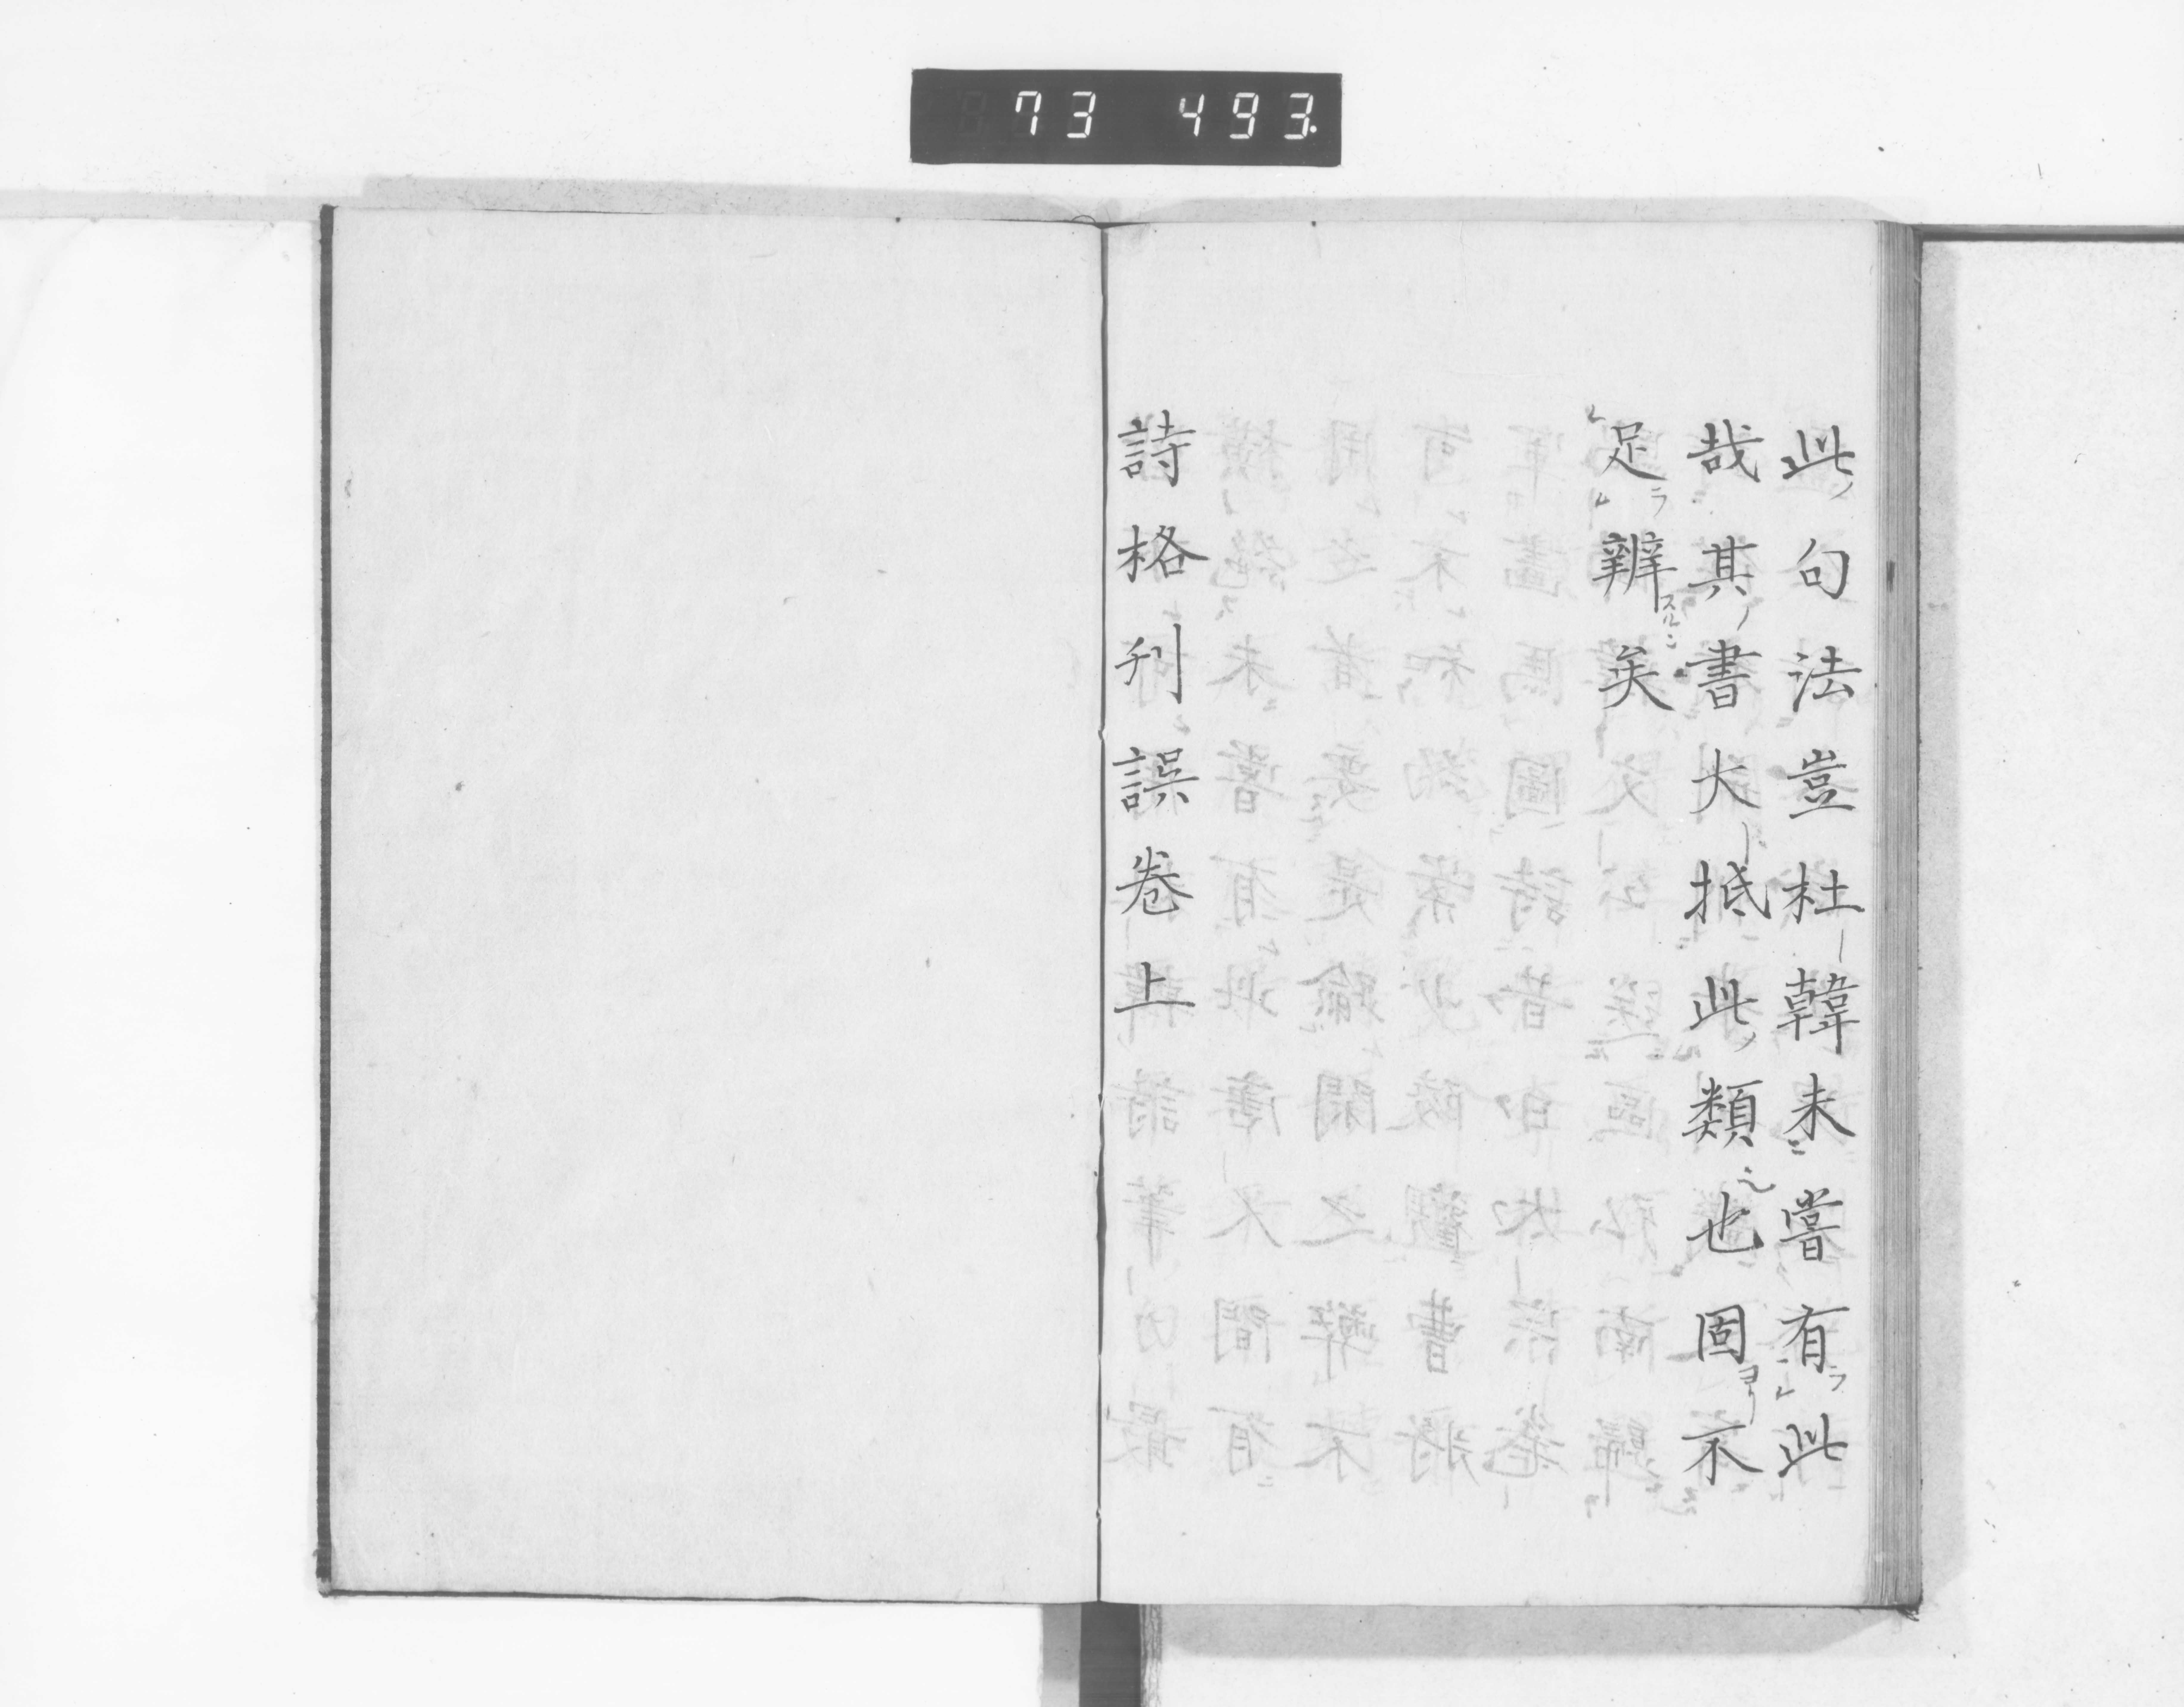 73 493.
此句法豈杜韓未嘗有此
哉其書大抵此類也固不
足辨矣
詩格刊誤卷上